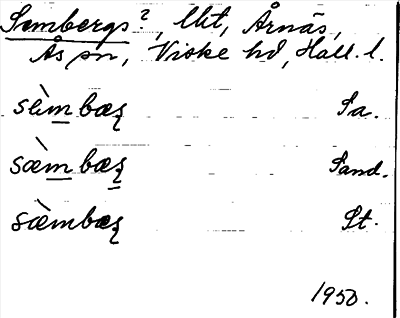 Sembergs?, lht, Årnäs,
Ås sn, Viske hd, Hall. l.
sèmbæʂ Sa.
sæ̀mbæʂ Sand.
sæ̀mbæʂ St.
1950.